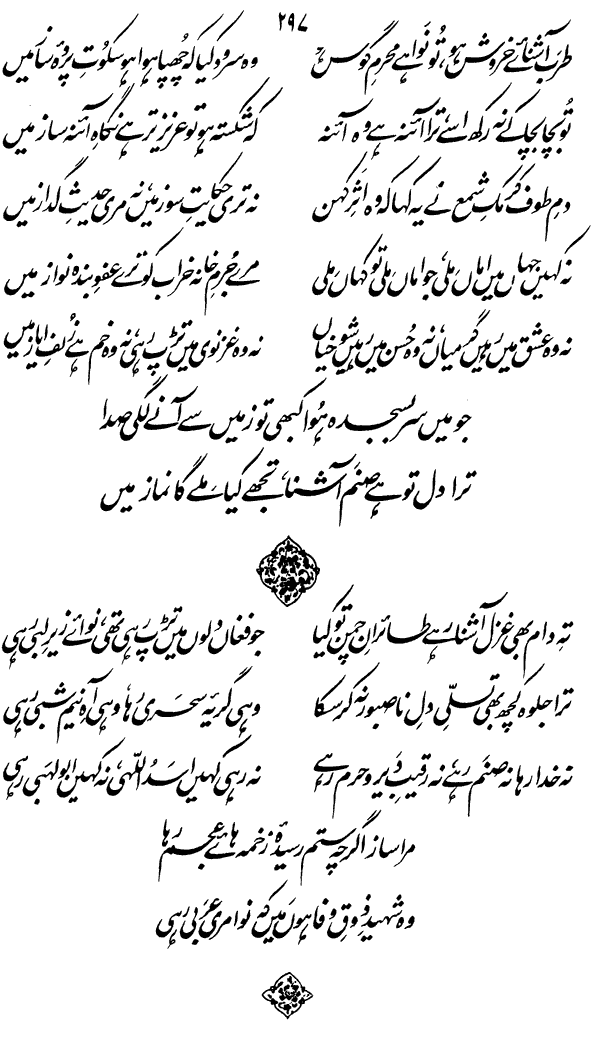 ۲۹۷
طرب آشنائے خروش ہو، تُو نَوا ہے محرمِ گوش ہو وہ سرود کیا کہ چھپا ہوا ہو سکوتِ پردۂ ساز میں
تُو بچا بچا کے نہ رکھ اسے ترا آئنہ ہے وہ آئنہ کہ شکستہ ہو تو عزیز تر ہے نگاہِ آئنہ ساز میں
دمِ طوف کرمکِ شمع نے یہ کہا کہ وہ اثرِ کہن نہ تری حکایتِ سوز میں، نہ مری حدیثِ گداز میں
نہ کہیں جہاں میں اماں ملی، جو اماں ملی تو کہاں ملی مرے جُرمِ خانہ خراب کو ترے عفوِ بندہ نواز میں
نہ وہ عشق میں رہیں گرمیاں، نہ وہ حُسن میں رہیں شوخیاں نہ وہ غزنوی میں تڑپ رہی، نہ وہ خم ہے زُلفِ ایاز میں
جو میں سر بسجدہ ہُوا کبھی تو زمیں سے آنے لگی صدا
ترا دل تو ہے صنم آشنا، تجھے کیا ملے گا نماز میں
تہِ دام بھی غزل آشنا رہے طائرانِ چمن تو کیا جو فغاں دلوں میں تڑپ رہی تھی، نوائے زیرِ لبی رہی
ترا جلوہ کچھ بھی تسلّیِ دلِ ناصبور نہ کر سکا وہی گریۂ سحری رہا، وہی آہِ نیم شبی رہی
نہ خدا رہا نہ صنم رہے، نہ رقیبِ دَیر و حرم رہے نہ رہی کہیں اسدُ اللّٰہی، نہ کہیں ابولہبی رہی
مرا ساز اگرچہ ستم رسیدۂ زخمہ ہائے عجم رہا
وہ شہیدِ ذوقِ وفا ہوں میں کہ نوا مری عَرَبی رہی